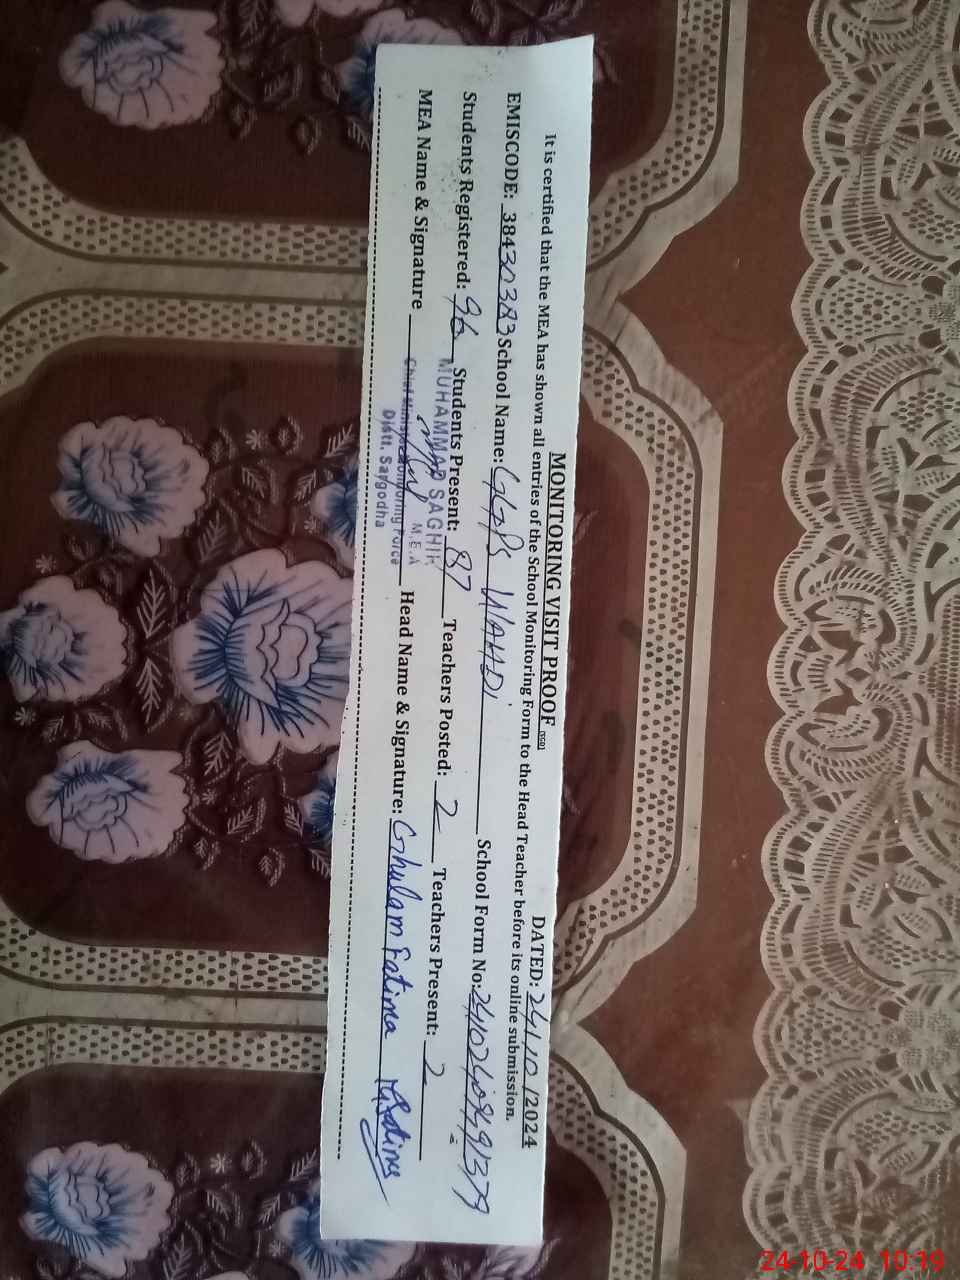 MONITORING VISIT PROOF DATED: 24/10/2024
It is certified that the MEA has shown all entries of the School Monitoring Form to the Head Teacher before its online submission.
EMISCODE: 38430383 School Name: GGPS WAHDI School Form No:
Students Registered: 96 Students Present: 87 Teachers Posted: 2 Teachers Present: 2
MUHAMMAD SAGHIR
M.E.A
MEA Name & Signature Head Name & Signature: Ghulam Fatima GFatima
Chief Minister Monitoring Force
Distt. Sargodha
24-10-24 10:19